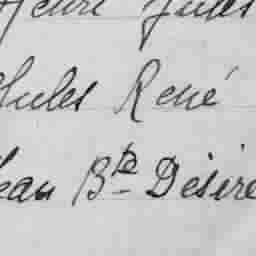 Henri Jules
Jules René
Jean Bte Désiré